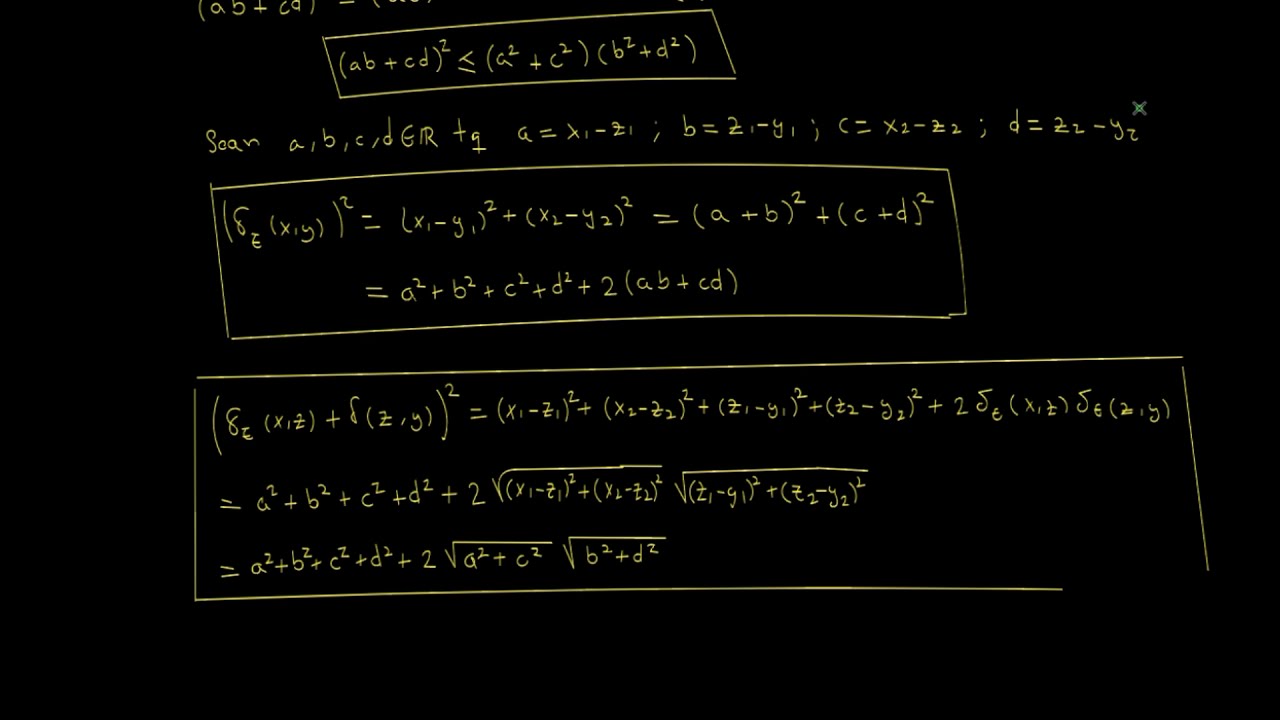 (ab + cd) = (
(ab + cd)² ≤ (a² + c²)(b² + d²)
Sean a, b, c, d ∈ ℝ tq a = x₁ - z₁ ; b = z₁ - y₁ ; c = x₂ - z₂ ; d = z₂ - y₂
(δ_E (x,y))² = (x₁ - y₁)² + (x₂ - y₂)² = (a + b)² + (c + d)²
= a² + b² + c² + d² + 2(ab + cd)
(δ_E (x,z) + δ(z,y))² = (x₁ - z₁)² + (x₂ - z₂)² + (z₁ - y₁)² + (z₂ - y₂)² + 2 δ_E (x,z) δ_E (z,y)
= a² + b² + c² + d² + 2 √((x₁ - z₁)² + (x₂ - z₂)²) √((z₁ - y₁)² + (z₂ - y₂)²)
= a² + b² + c² + d² + 2 √(a² + c²) √(b² + d²)